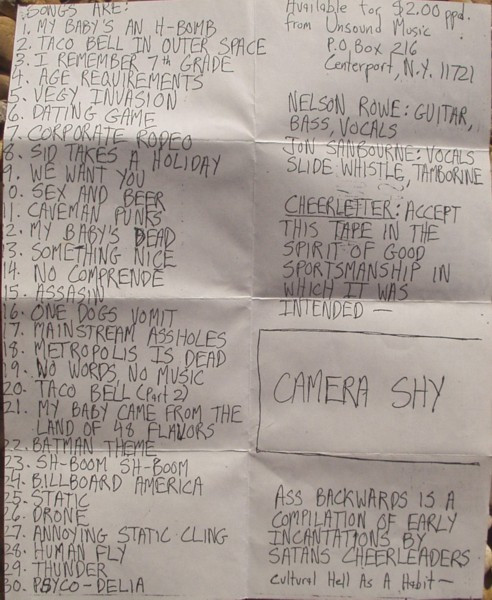 SONGS ARE:
1. MY BABY'S AN H-BOMB
2. TACO BELL IN OUTER SPACE
3. I REMEMBER 7th GRADE
4. AGE REQUIREMENTS
5. VEGY INVASION
6. DATING GAME
7. CORPORATE RODEO
8. SID TAKES A HOLIDAY
9. WE WANT YOU
0. SEX AND BEER
1. CAVEMAN PUNKS
2. MY BABY'S DEAD
3. SOMETHING NICE
14. NO COMPRENDE
15. ASSASIN
16. ONE DOGS VOMIT
17. MAINSTREAM ASSHOLES
18. METROPOLIS IS DEAD
19. NO WORDS NO MUSIC
20. TACO BELL (Part 2)
21. MY BABY CAME FROM THE
LAND OF 48 FLAVORS
22. BATMAN THEME
23. SH-BOOM SH-BOOM
24. BILLBOARD AMERICA
25. STATIC
26. DRONE
27. ANNOYING STATIC CLING
28. HUMAN FLY
29. THUNDER
30. PSYCO-DELIA
Available for $2.00 ppd.
from Unsound Music
P.O. Box 216
Centerport, N.Y. 11721
NELSON ROWE: GUITAR,
BASS, VOCALS
JON SANBOURNE: VOCALS
SLIDE WHISTLE, TAMBORINE
CHEERLETTER: ACCEPT
THIS TAPE IN THE
SPIRIT OF GOOD
SPORTSMANSHIP IN
WHICH IT WAS
INTENDED —
CAMERA SHY
ASS BACKWARDS IS A
COMPILATION OF EARLY
INCANTATIONS BY
SATANS CHEERLEADERS
Cultural Hell As A Habit —